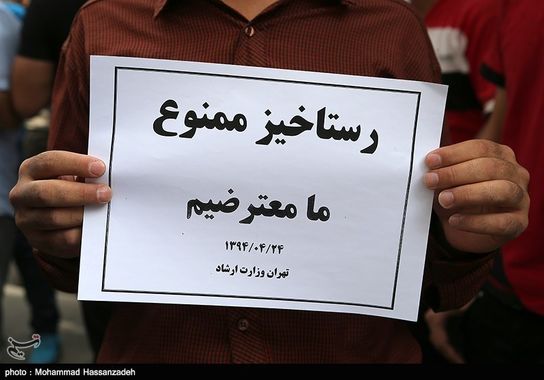 رستاخیز ممنوع
ما معترضیم
۱۳۹۴/۰۴/۲۴
تهران وزارت ارشاد
Photo: Mohammad Hassanzadeh